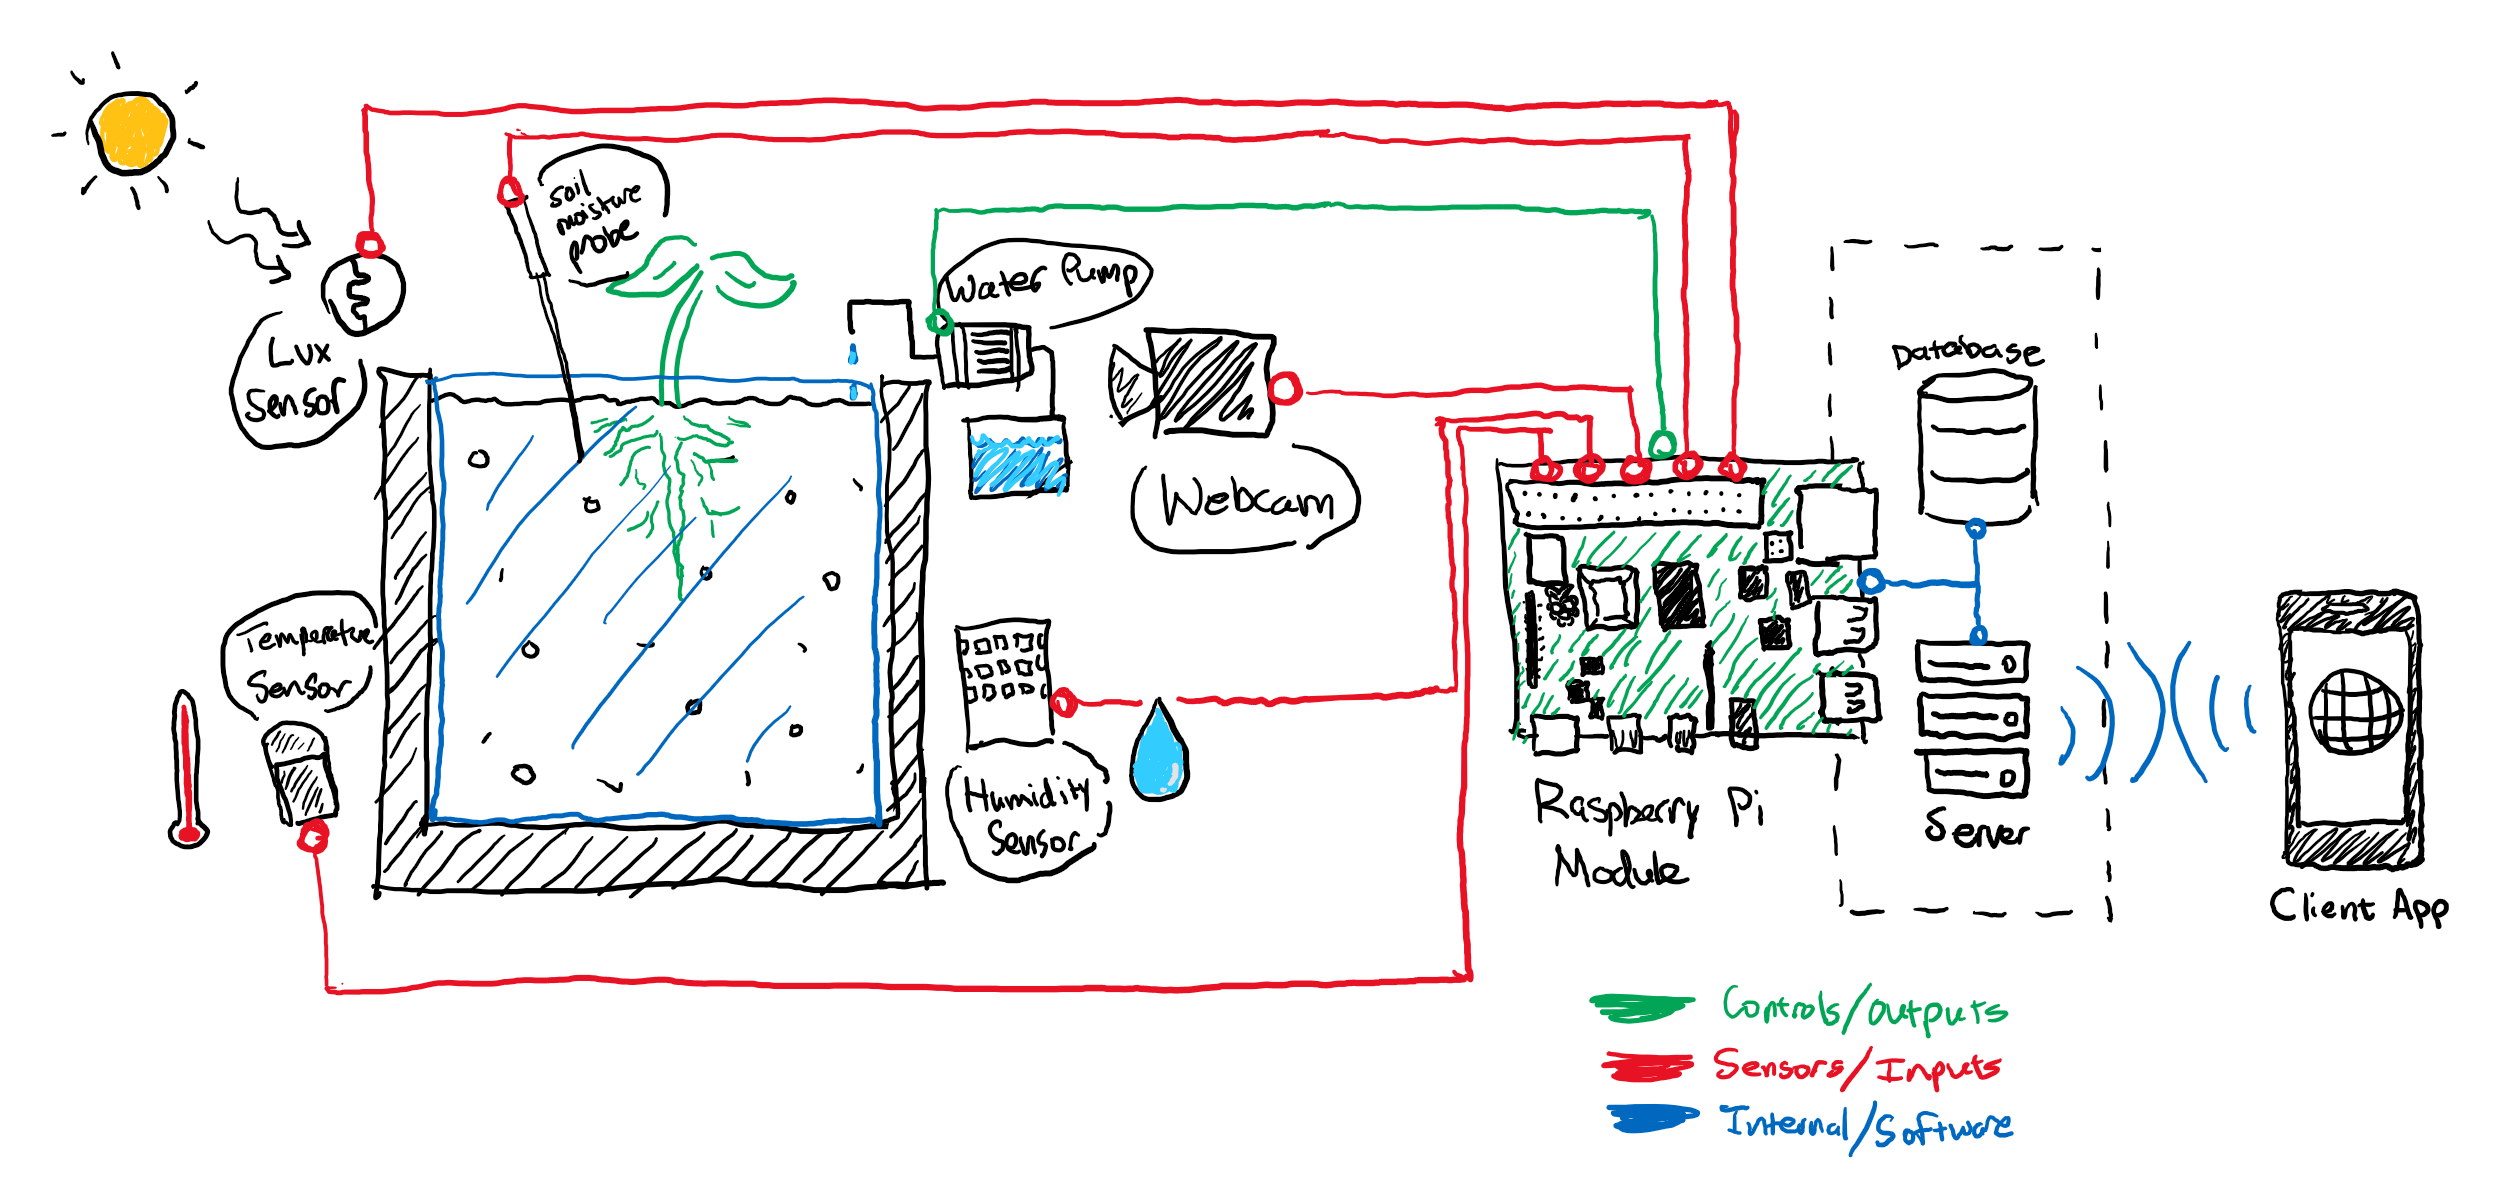 soil
moisture
probe
Water Pump
Lux
Sensor
Database
Webcam
Temperature
Sensor
Humidity
Sensor
Raspberry Pi
Module
Server
Client App
Controls/Outputs
Sensors/Inputs
Internal/Software